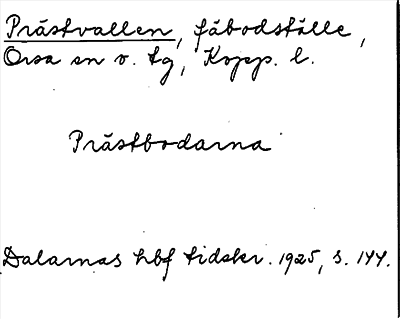 Prästvallen, fäbodställe,
Orsa sn o. tg, Kopp. l.
Prästbodarna
Dalarnas hbf tidskr. 1925, s. 144.